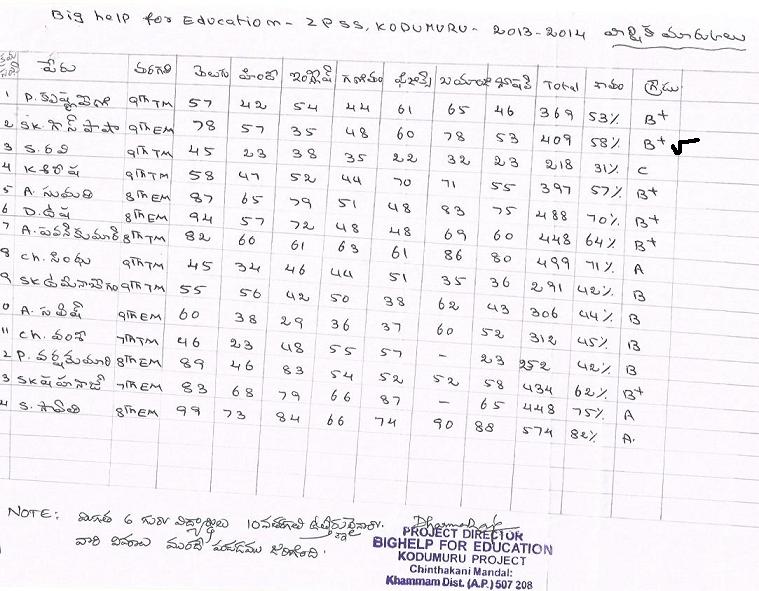 Big help for Education - ZPSS, KODUMURU - 2013-2014 వార్షిక మార్కులు
క్రమ సంఖ్య పేరు తరగతి తెలుగు హిందీ ఇంగ్లీష్ గణితం ఫిజిక్స్ బయాలజీ సోషల్ Total శాతం గ్రేడు
1 P. 9th TM 57 42 54 44 61 65 46 369 53% B+
2 SK. 9th EM 78 57 35 48 60 78 53 409 58% B+ ✓
3 S. రవి 9th TM 45 23 38 35 22 32 23 218 31% C
4 K శిరీష 9th TM 58 47 52 44 70 71 55 397 57% B+
5 A. సుమతి 8th EM 87 65 79 51 48 83 75 488 70% B+
6 D. ఉష 8th EM 94 57 72 48 48 69 60 448 64% B+
7 A. పవన్ కుమార్ 8th TM 82 66 61 63 61 86 80 499 71% A
8 Ch. సింధు 9th TM 45 34 46 44 51 35 36 291 42% B
9 SK 9th TM 55 56 42 50 38 62 43 306 44% B
0 A. 9th EM 60 38 29 36 37 60 52 312 45% B
11 Ch. వంశీ 7th TM 46 23 48 55 57 - 23 252 42% B
2 P. 8th EM 89 46 83 54 52 52 58 434 62% B+
3 SK షహనాజ్ 7th EM 83 68 79 66 87 - 65 448 75% A
4 S. 8th EM 99 73 84 66 74 90 88 574 82% A.
NOTE: మిగతా 6 గురు విద్యార్థులు 10వ తరగతి ఉత్తీర్ణులైనారు.
వారి వివరాలు ముందే పంపడము జరిగింది.
PROJECT DIRECTOR
BIGHELP FOR EDUCATION
KODUMURU PROJECT
Chinthakani Mandal:
Khammam Dist. (A.P.) 507 208